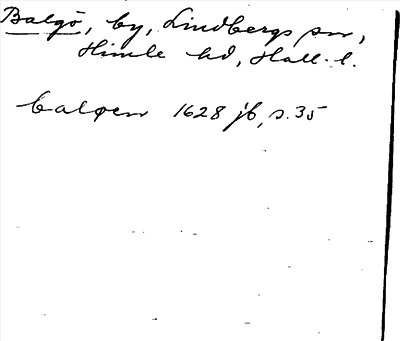 Balgö, by, Lindbergs sn,
Himle hd, Hall. l.
balgøen 1628 jb, s. 35